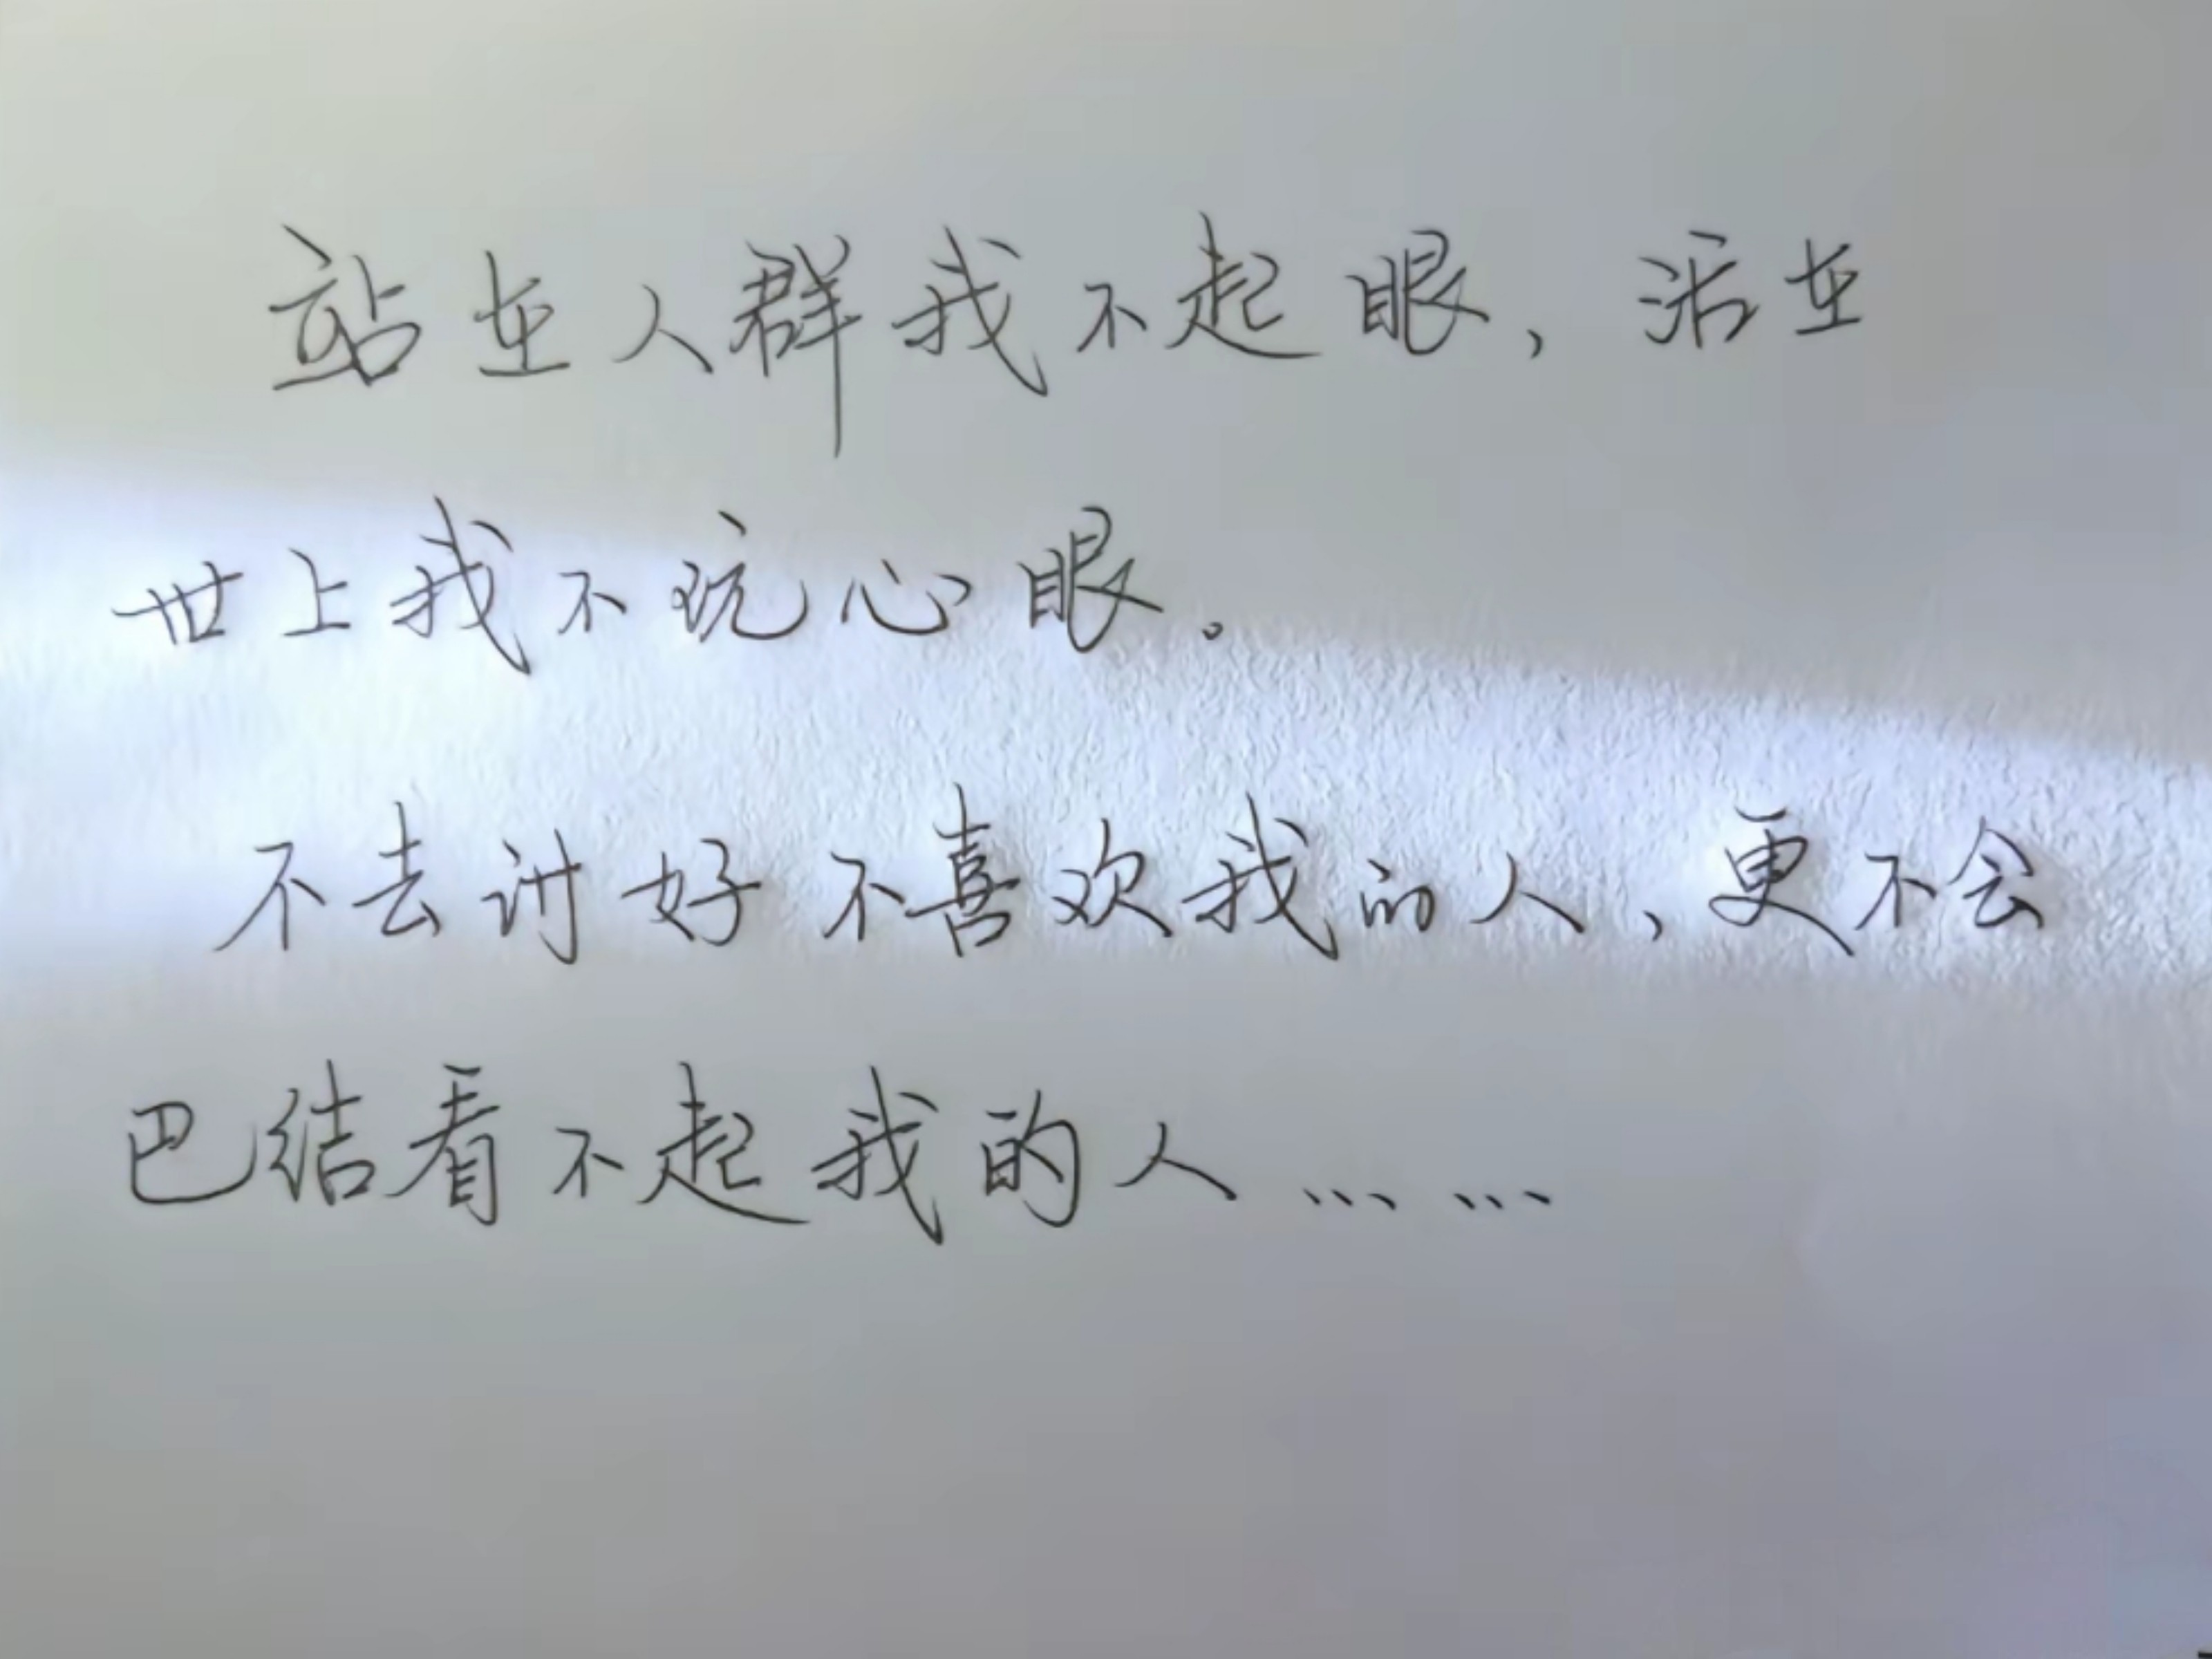 站在人群我不起眼，活在
世上我不玩心眼。
不去讨好不喜欢我的人，更不会
巴结看不起我的人……